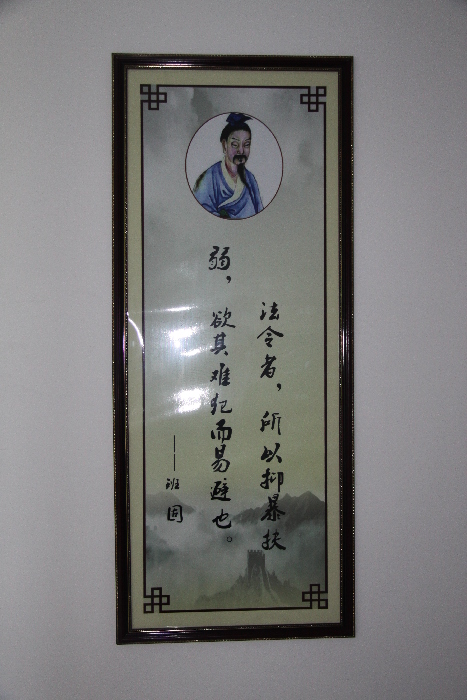 法令者，所以抑暴扶
弱，欲其难犯而易避也。
——班固